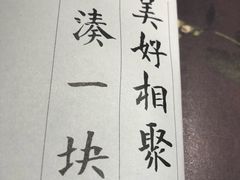 美好相聚
湊一块